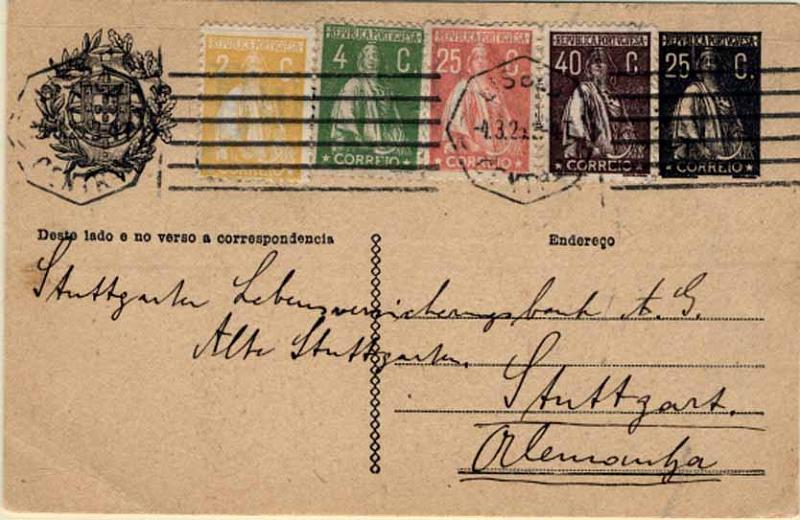 REPUBLICA PORTUGUESA
2 C.
CORREIO
REPUBLICA PORTUGUESA
4 C.
CORREIO
REPUBLICA PORTUGUESA
25 C.
CORREIO
REPUBLICA PORTUGUESA
40 C.
CORREIO
REPUBLICA PORTUGUESA
25 C.
CORREIO
CENTRAL
LISBOA
-4.3.2
CENTRAL
Deste lado e no verso a correspondencia
Endereço
Stuttgarter Lebensversicherungsbank A. G.
Alte Stuttgarter.
Stuttgart.
Alemanha